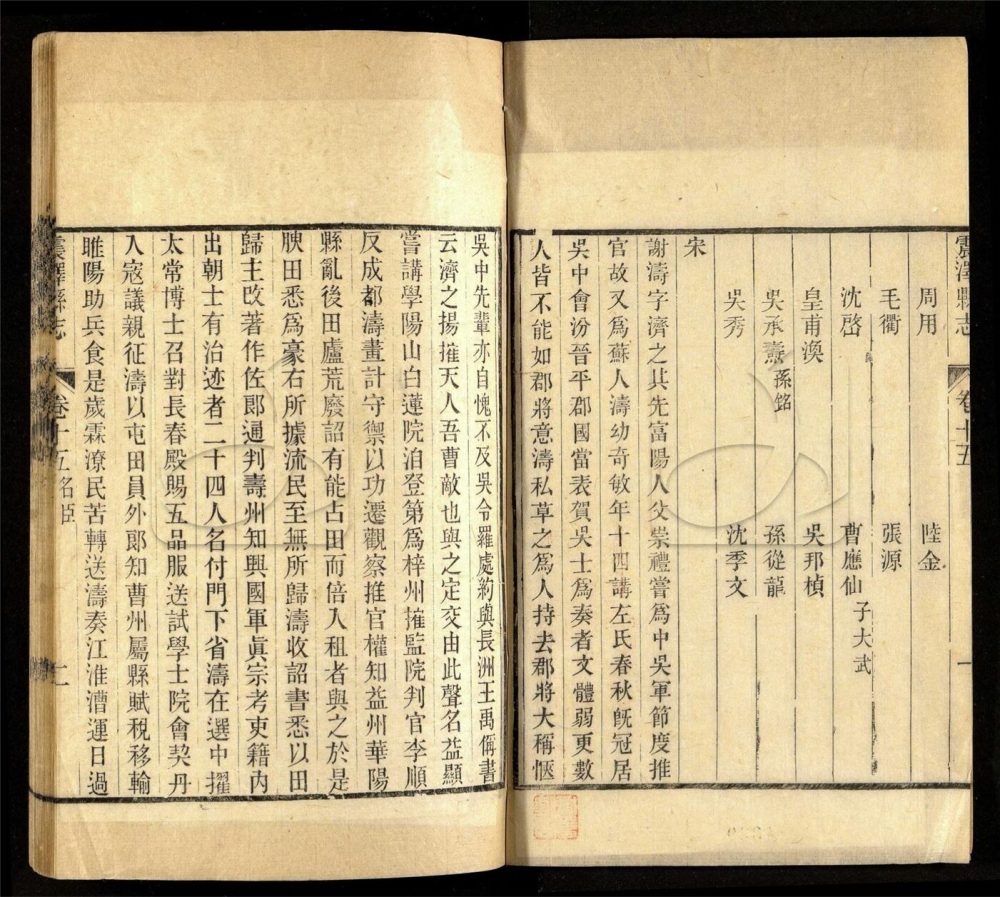 震澤縣志 卷十五 一
周用 陸金
毛衢 張源
沈啓 曹應仙 子大武
皇甫渙 吳邦楨
吳承燾 孫銘 孫從龍
吳秀 沈季文
宋
謝濤字濟之其先富陽人父崇禮嘗爲中吳軍節度推
官故又爲蘇人濤幼奇敏年十四講左氏春秋旣冠居
吳中會汾晉平郡國當表賀吳士爲奏者文體弱更數
人皆不能如郡將意濤私草之爲人持去郡將大稱愜
吳中先輩亦自愧不及吳令羅處約與長洲王禹偁書
云濟之揚搉天人吾曹敵也與之定交由此聲名益顯
嘗講學陽山白蓮院洎登第爲梓州搉監院判官李順
反成都濤畫計守禦以功遷觀察推官權知益州華陽
縣亂後田廬荒廢詔有能占田而倍入租者與之於是
腴田悉爲豪右所據流民至無所歸濤收詔書悉以田
歸主改著作佐郎通判壽州知興國軍眞宗考吏籍內
出朝士有治迹者二十四人名付門下省濤在選中擢
太常博士召對長春殿賜五品服送試學士院會契丹
入寇議親征濤以屯田員外郎知曹州屬縣賦稅移輸
睢陽助兵食是歲霖潦民苦轉送濤奏江淮漕運日過
震澤縣志 卷十五 名臣